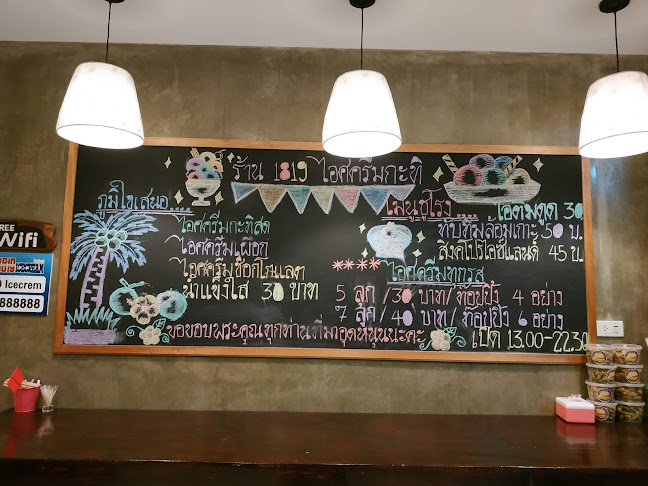 ร้าน 1819 ไอศครีมกะทิ
ภูมิใจเสนอ...
ไอศครีมกะทิสด
ไอศครีมเผือก
ไอศครีมช็อกโกแลต
น้ำแข็งใส 30 บาท
เมนูชูโรง...
ไอติมตูด 30
ทับทิมล้อมเกาะ 50 บ.
สิงคโปร์ไอซ์แลนด์ 45 บ.
**** ไอศครีมทุกรส
5 ลูก /30 บาท/ ท้อปปิ้ง 4 อย่าง
7 ลูก /40 บาท/ ท้อปปิ้ง 6 อย่าง
ขอขอบพระคุณทุกท่านที่มาอุดหนุนนะคะ
เปิด 13.00-22.30
FREE
WiFi
Icecrem
888888